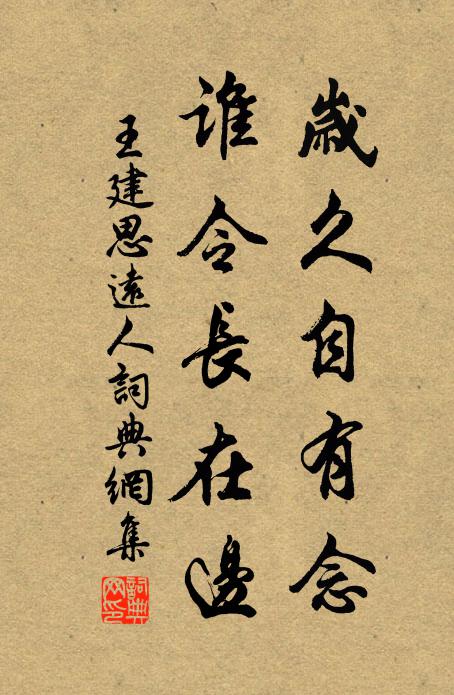 歲久自有念
誰令長在邊
王建思遠人詞典網集
詞典网印